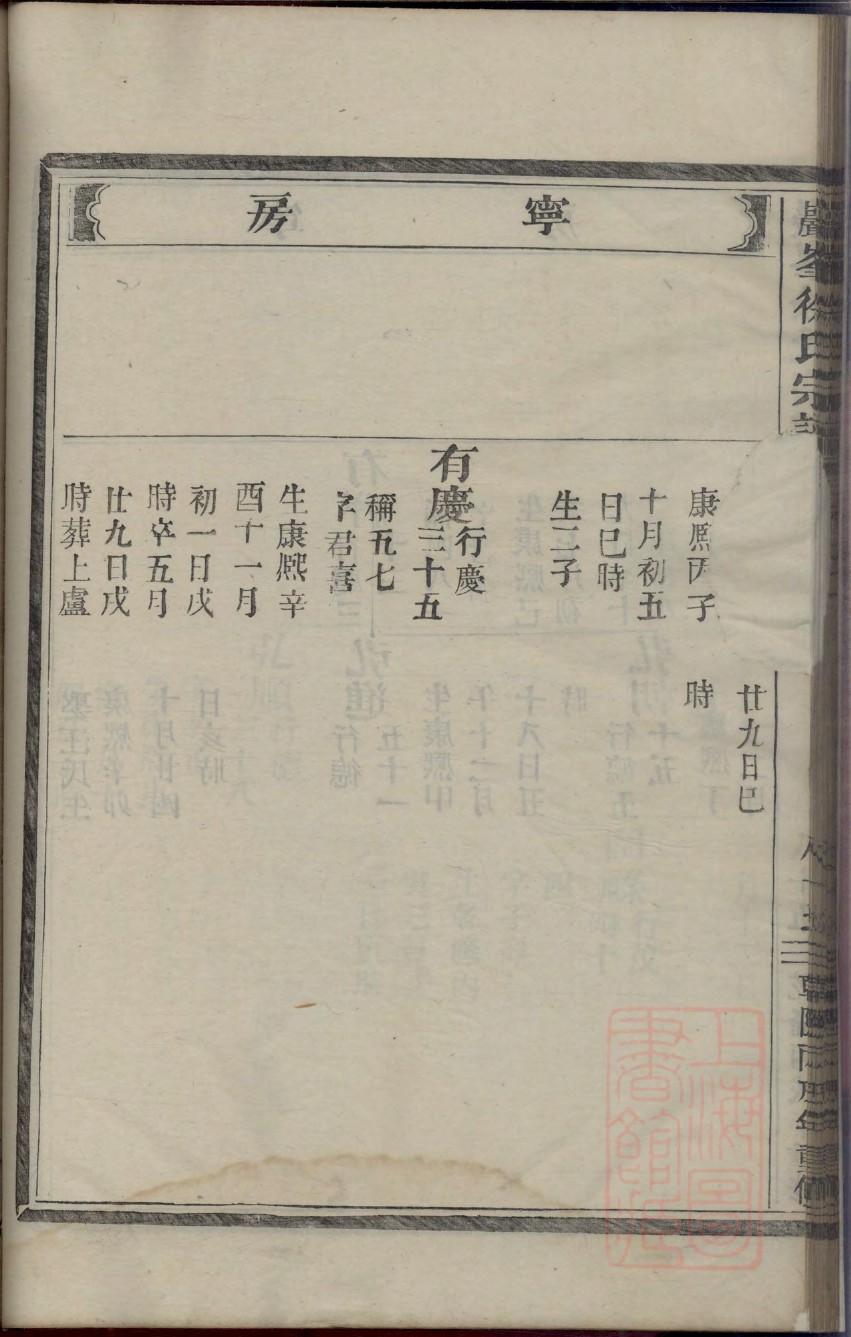 寧房
廿九日巳
時
康熈丙子
十月初五
日巳時
生二子
有慶行慶
三十五
稱五七
字君喜
生康熈辛
酉十一月
初一日戌
時卒五月
廿九日戌
時葬上盧
巖峯徐氏宗譜
上海圖
書館藏